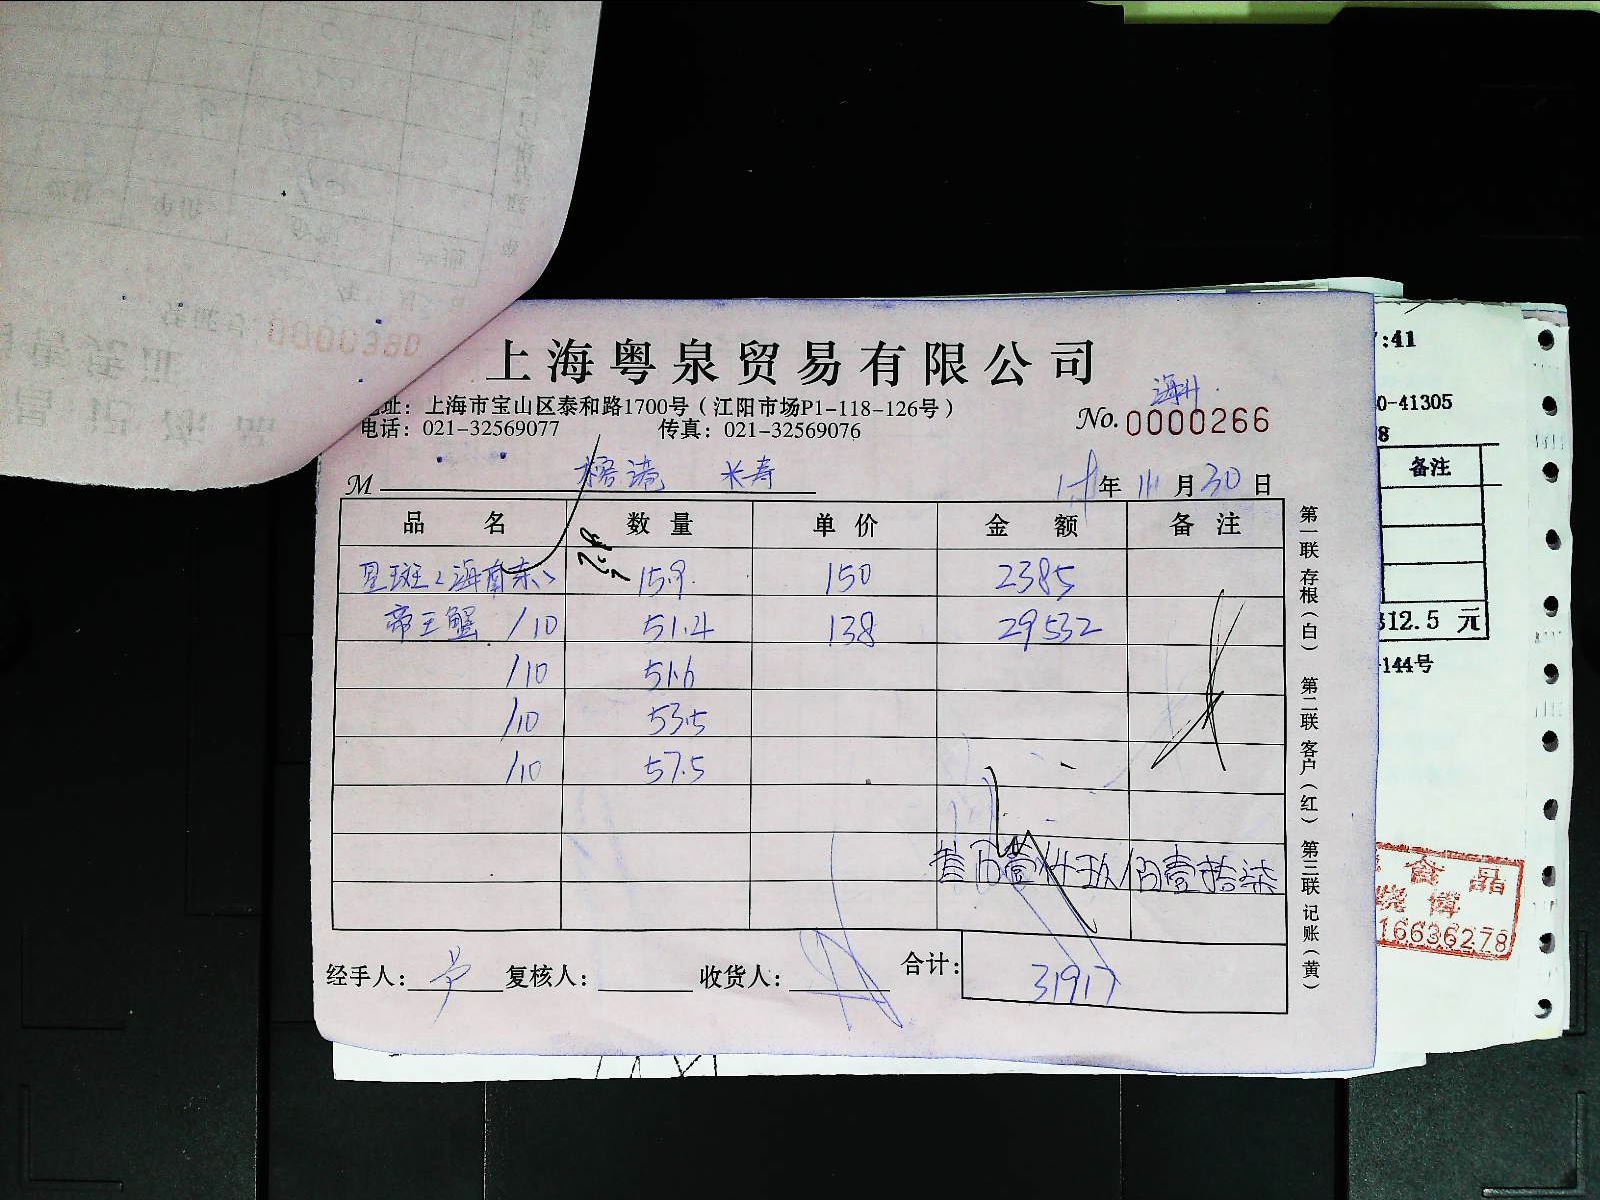 上海粤泉贸易有限公司
地址：上海市宝山区泰和路1700号（江阳市场P1-118-126号）
电话：021-32569077 传真：021-32569076
No. 0000266
M 榕港 长寿 年 11 月 30 日
品名 数量 单价 金额 备注
星斑（海南东） 15.9 150 2385
帝王蟹 /10 51.4 138 29532
/10 51.6
/10 53.5
/10 57.5
佰壹拾柒
经手人： 复核人： 收货人： 合计： 31917
第一联 存根（白） 第二联 客户（红） 第三联 记账（黄）
0000380
:41
0-41305
8
备注
312.5 元
144号
食品
晓博
16636278